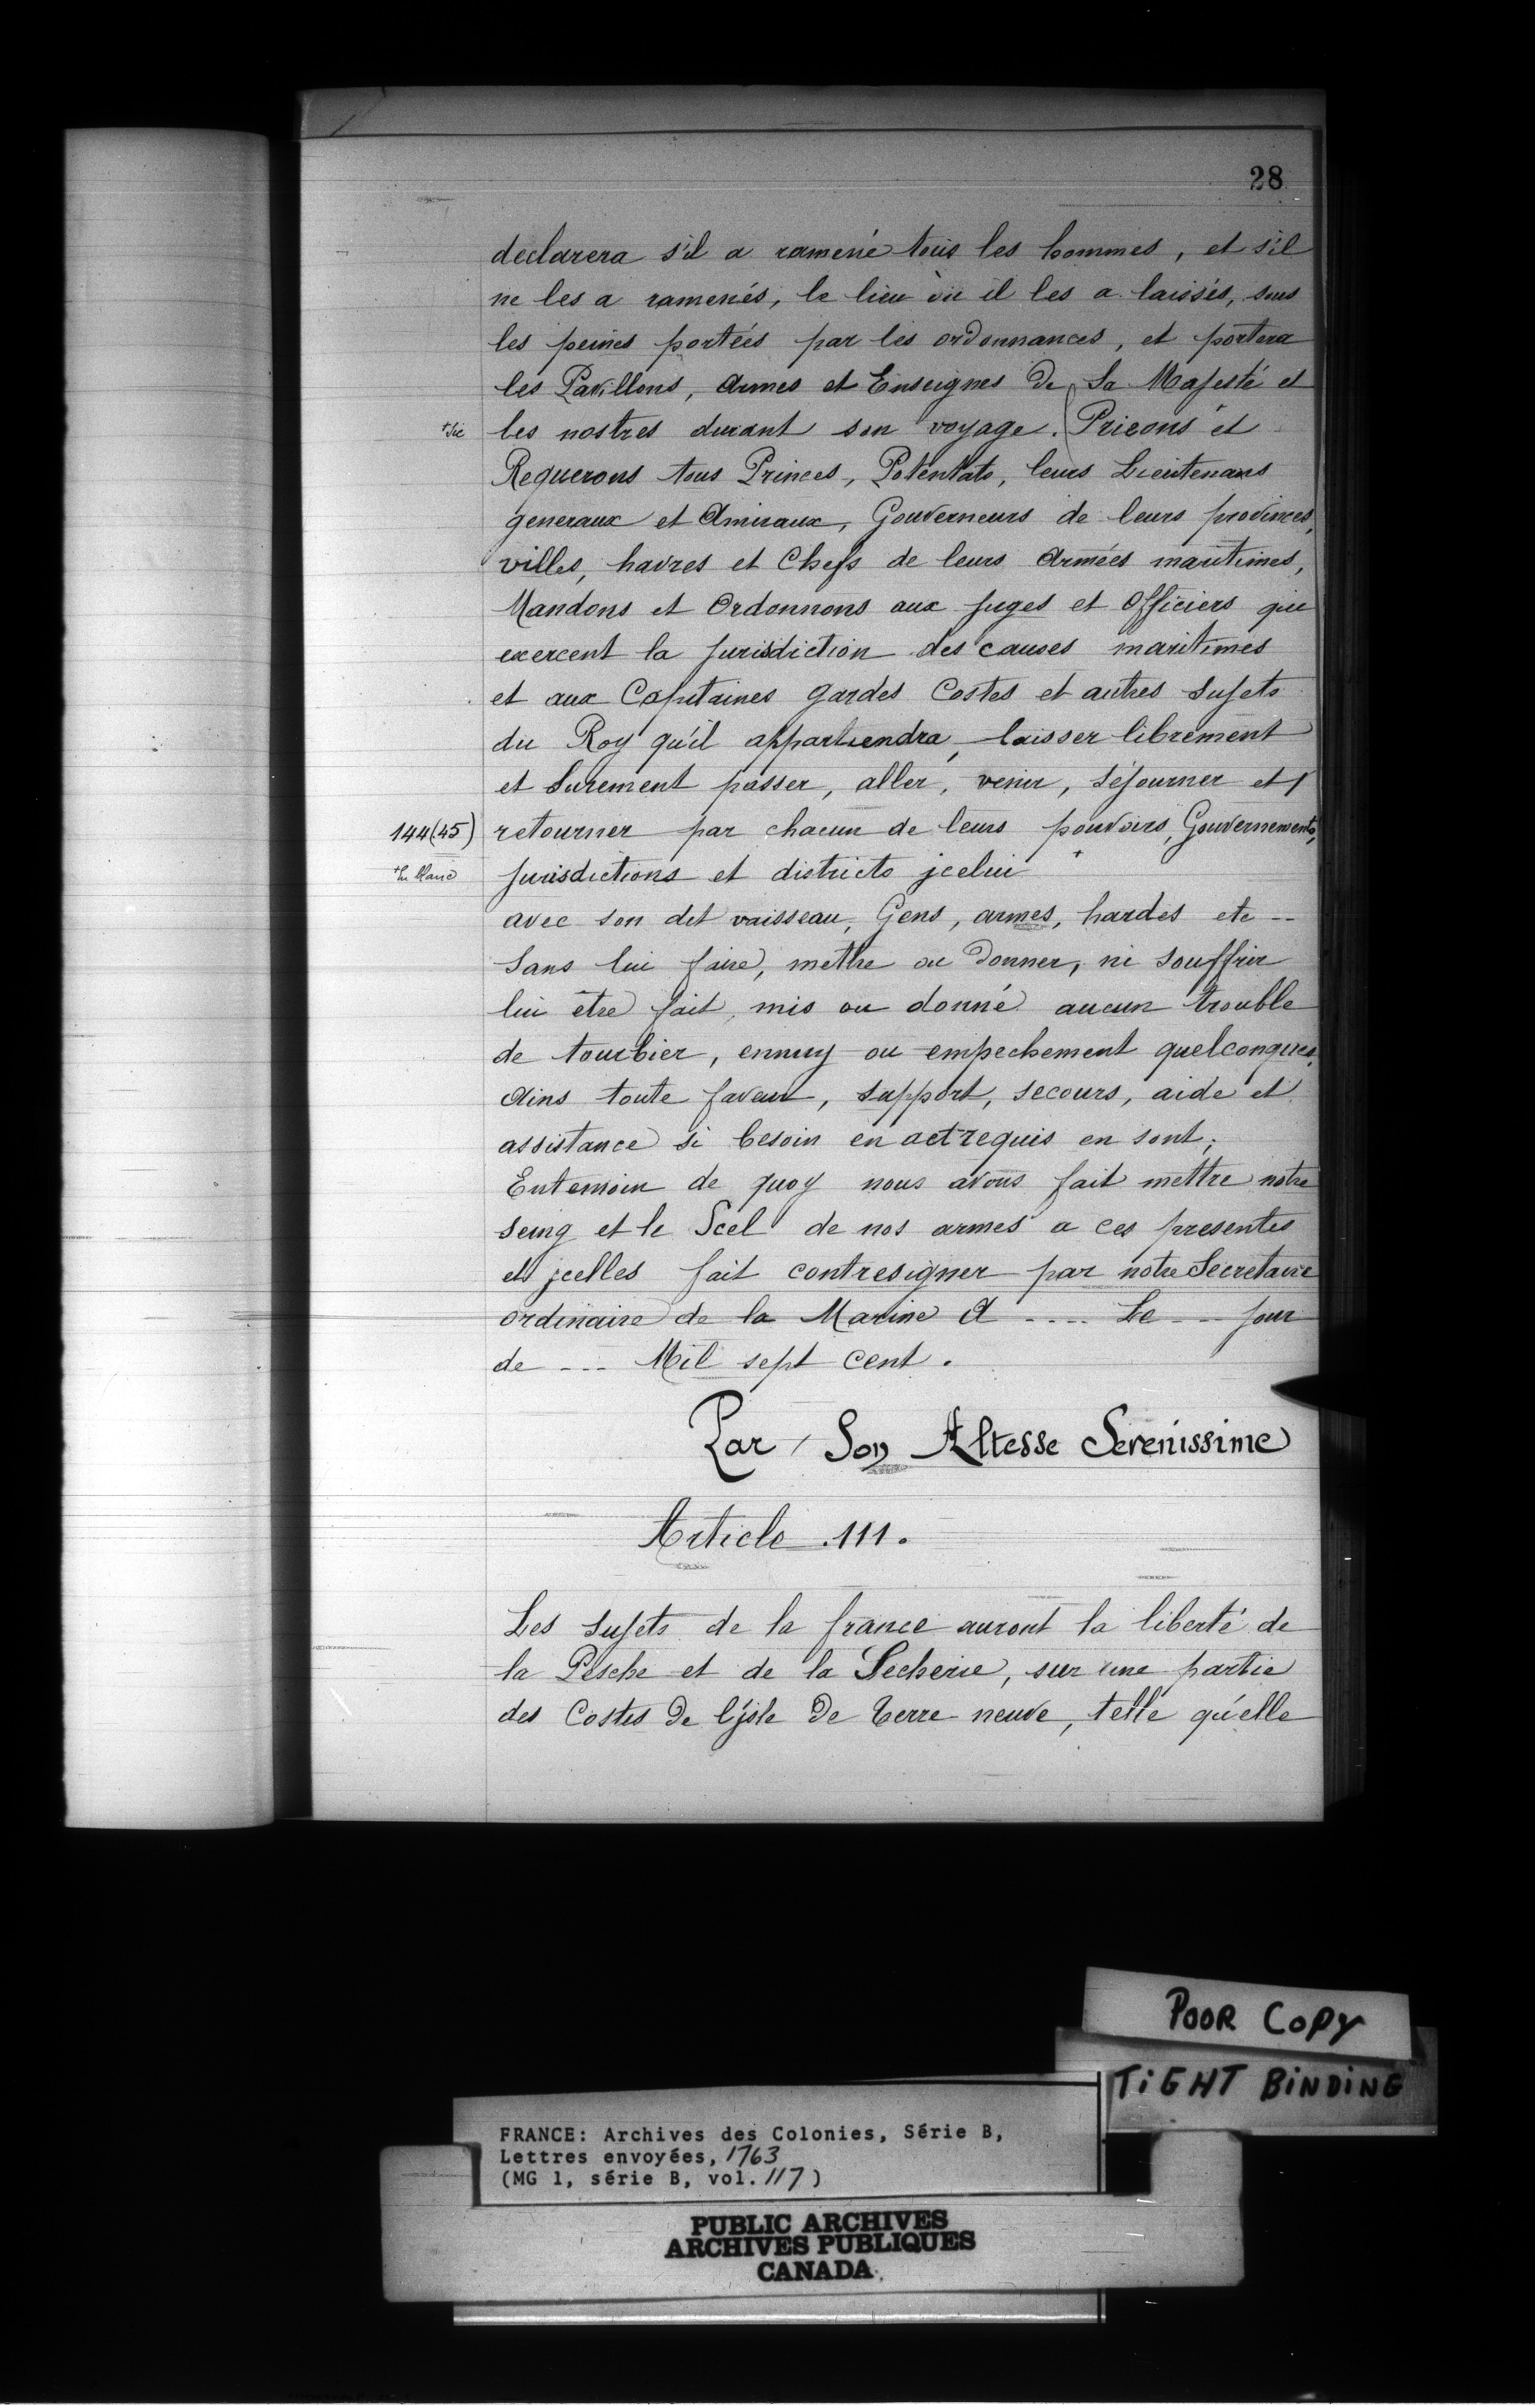 28
declarera s'il a ramené tous les hommes, et s'il
ne les a ramenés, le lieu où il les a laissés, sous
les peines portées par les ordonnances, et portera
les Pavillons, Armes et Enseignes de Sa Majesté et
+ sic
les nostres durant son voyage. Prieons + et
Requerons tous Princes, Potentats, leurs Lieutenans
generaux et Amiraux, Gouverneurs de leurs provinces,
villes, havres et Chefs de leurs Armées maritimes,
Mandons et Ordonnons aux juges et Officiers qui
exercent la jurisdiction des causes maritimes
et aux Capitaines Gardes Costes et autres Sujets
du Roy qu'il appartiendra, laisser librement
et Surement passer, aller, venir, séjourner et /
144 (45)
retourner par chacun de leurs pouvoirs, Gouvernements,
+ En blanc
jurisdictions et districts jcelui +
avec son dit vaisseau, Gens, armes, hardes etc --
Sans lui faire, mettre ou donner, ni souffrir
lui être fait, mis ou donné aucun trouble
de tourbier, ennuy ou empechement quelconques,
Ains toute faveur, support, secours, aide et
assistance si besoin en act requis en sont;
Entemoin de quoy nous avons fait mettre notre
seing et le Scel de nos armes a ces presentes
et jcelles fait contresigner par notre Secretaire
ordinaire de la Marine A .... Le --- jour
de --- Mil sept cent.
Par Son Altesse Serenissime
Article .111.
Les Sujets de la france auront la liberté de
la Pesche et de la Secherie, sur une partie
des Costes de l'jsle de Terre neuve, telle qu'elle
POOR COPY
TIGHT BINDING
FRANCE: Archives des Colonies, Série B,
Lettres envoyées, 1763
(MG 1, série B, vol. 117)
PUBLIC ARCHIVES
ARCHIVES PUBLIQUES
CANADA